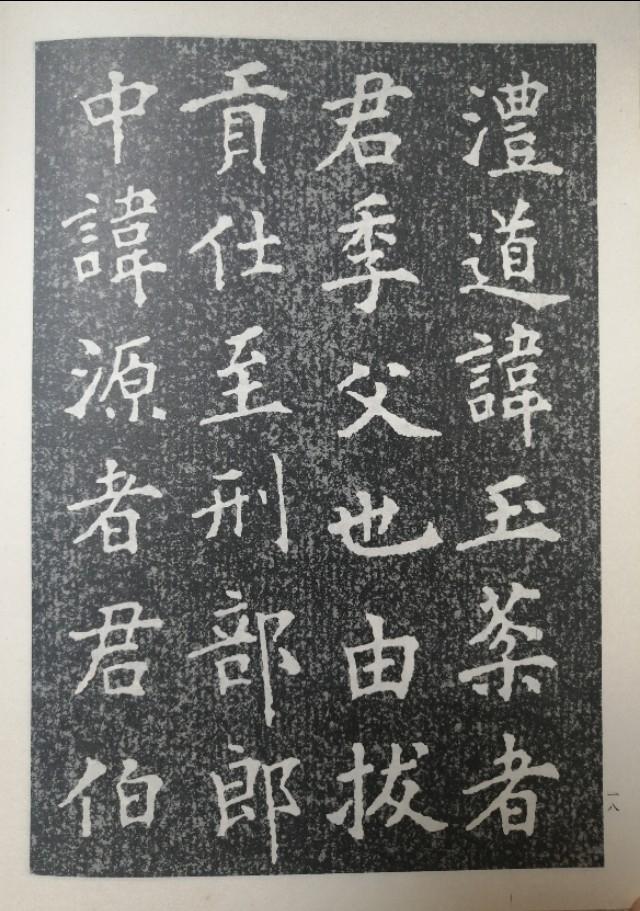 澧道諱玉棻者
君季父也由拔
貢仕至刑部郎
中諱源者君伯
一八